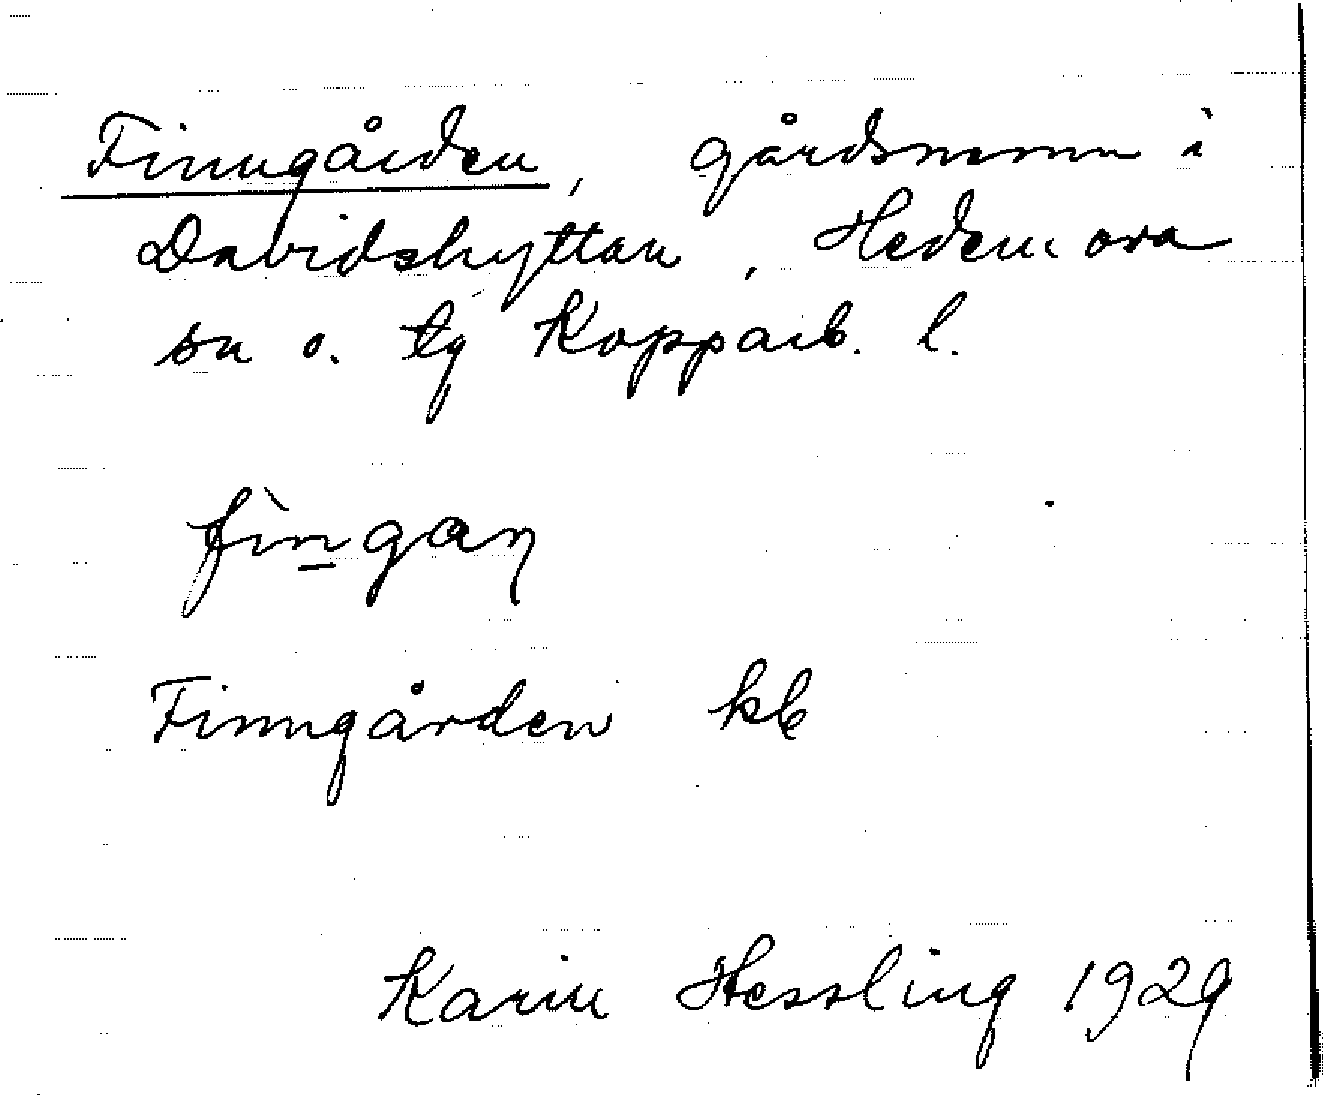 Finngården, gårdsnamn i
Davidshyttan, Hedemora
sn o. tg Kopparb. l.
fìn̲gaꞃ
Finngården kb
Karin Hessling 1929